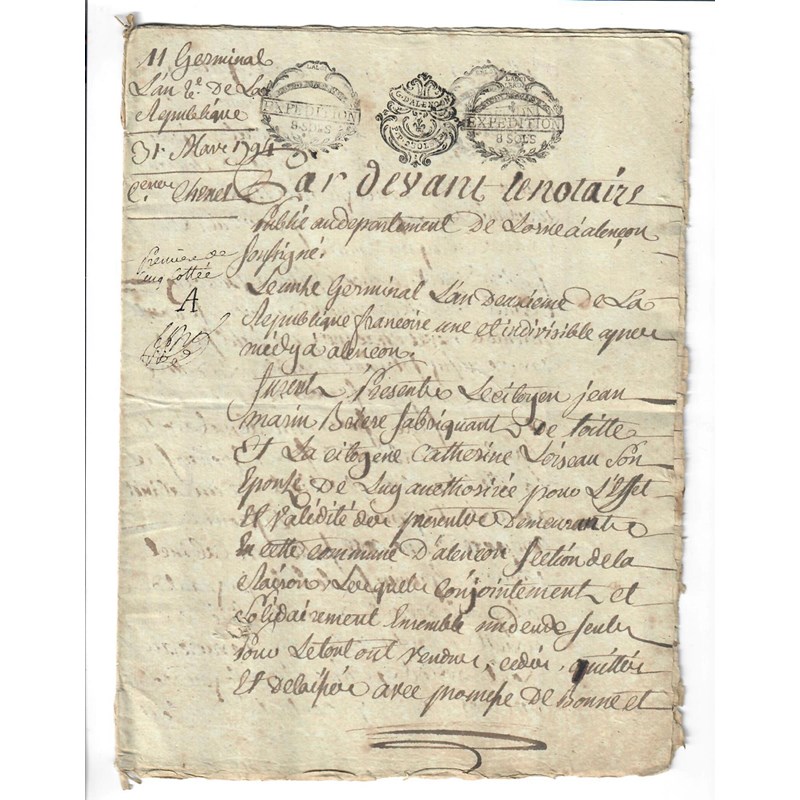 11 Germinal
L'an 2e. de La
Republique
31. Mars 1794
Cen Chenel
EXPEDITION
8 SOLS
G. D'ALENÇON
EXPEDITION
8 SOLS
Par devant le notaire
Publie au departement de Lorne a alençon
soussigné.
Premiere de
cinq Cottée
A
Le unse Germinal L'an deuxieme de La
Republique francoise une et indivisible apres
médy à alençon.
furents Presents Le citoyen jean
marin Boiere fabriquant de toille
Et La citoyene Catherine Loiseau son
Epouse De Luy aucthorisée pour L'Effet
Et validité des presentes Demeurants
En cette commune D'alençon Section de la
Raison, Lesquels Conjointement et
Solidairement Ensemble un deux seul
Pour Le tout ont vendus, cedés, quittés
Et delaissés avec promesse De Bonne et